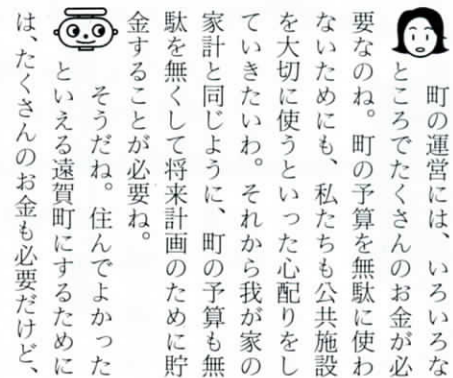 町の運営には、いろいろな
ところでたくさんのお金が必
要なのね。町の予算を無駄に使わ
ないためにも、私たちも公共施設
を大切に使うといった心配りをし
ていきたいわ。それから我が家の
家計と同じように、町の予算も無
駄を無くして将来計画のために貯
金することが必要ね。
そうだね。住んでよかった
といえる遠賀町にするために
は、たくさんのお金も必要だけど、